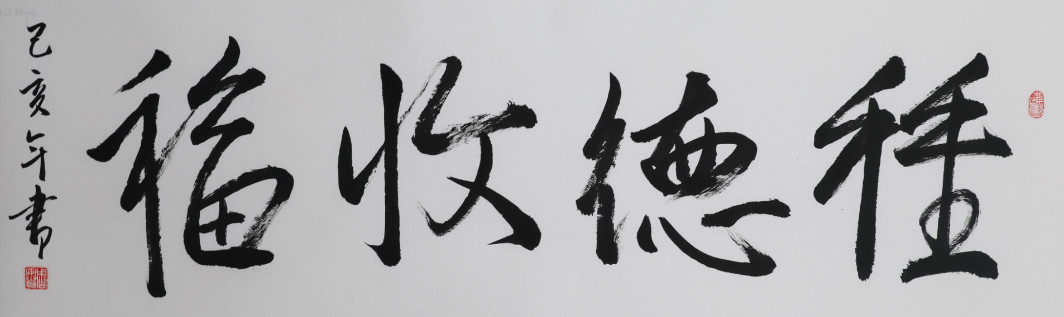 種德收福
己亥年書